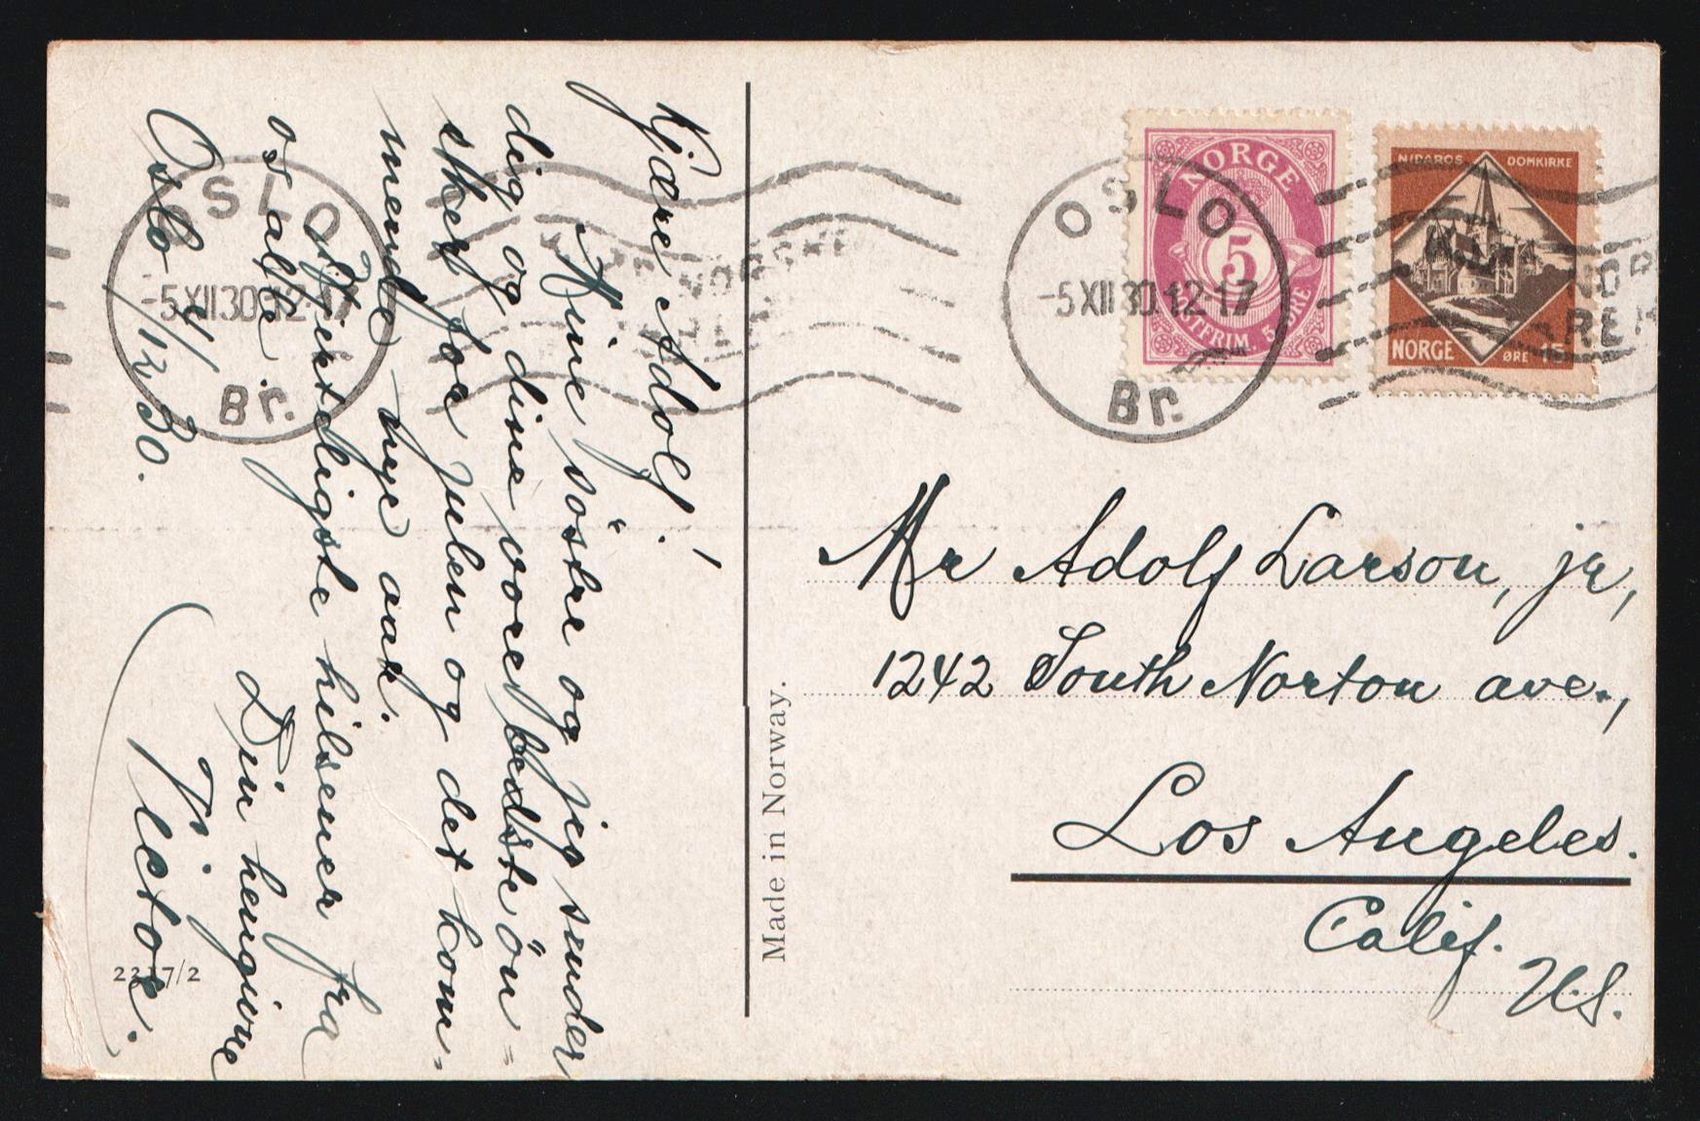 Kjære Adolf!
Mine søstre og jeg sender
dig og dine vore bedste øn=
sker for julen og det kom-
mende nye aar.
Hjerteligste hilsener fra
os alle.
Din hengivne
Victor.
Oslo 4/12 30.
2217/2
Made in Norway.
OSLO
-5XII30.12-17
Br.
OSLO
-5XII30.12-17
Br.
NORGE
5
POSTFRIM. 5 ØRE
NIDAROS DOMKIRKE
NORGE ØRE 15
Mr Adolf Larson, jr,
1242 South Norton ave.,
Los Angeles.
Calif.
U.S.